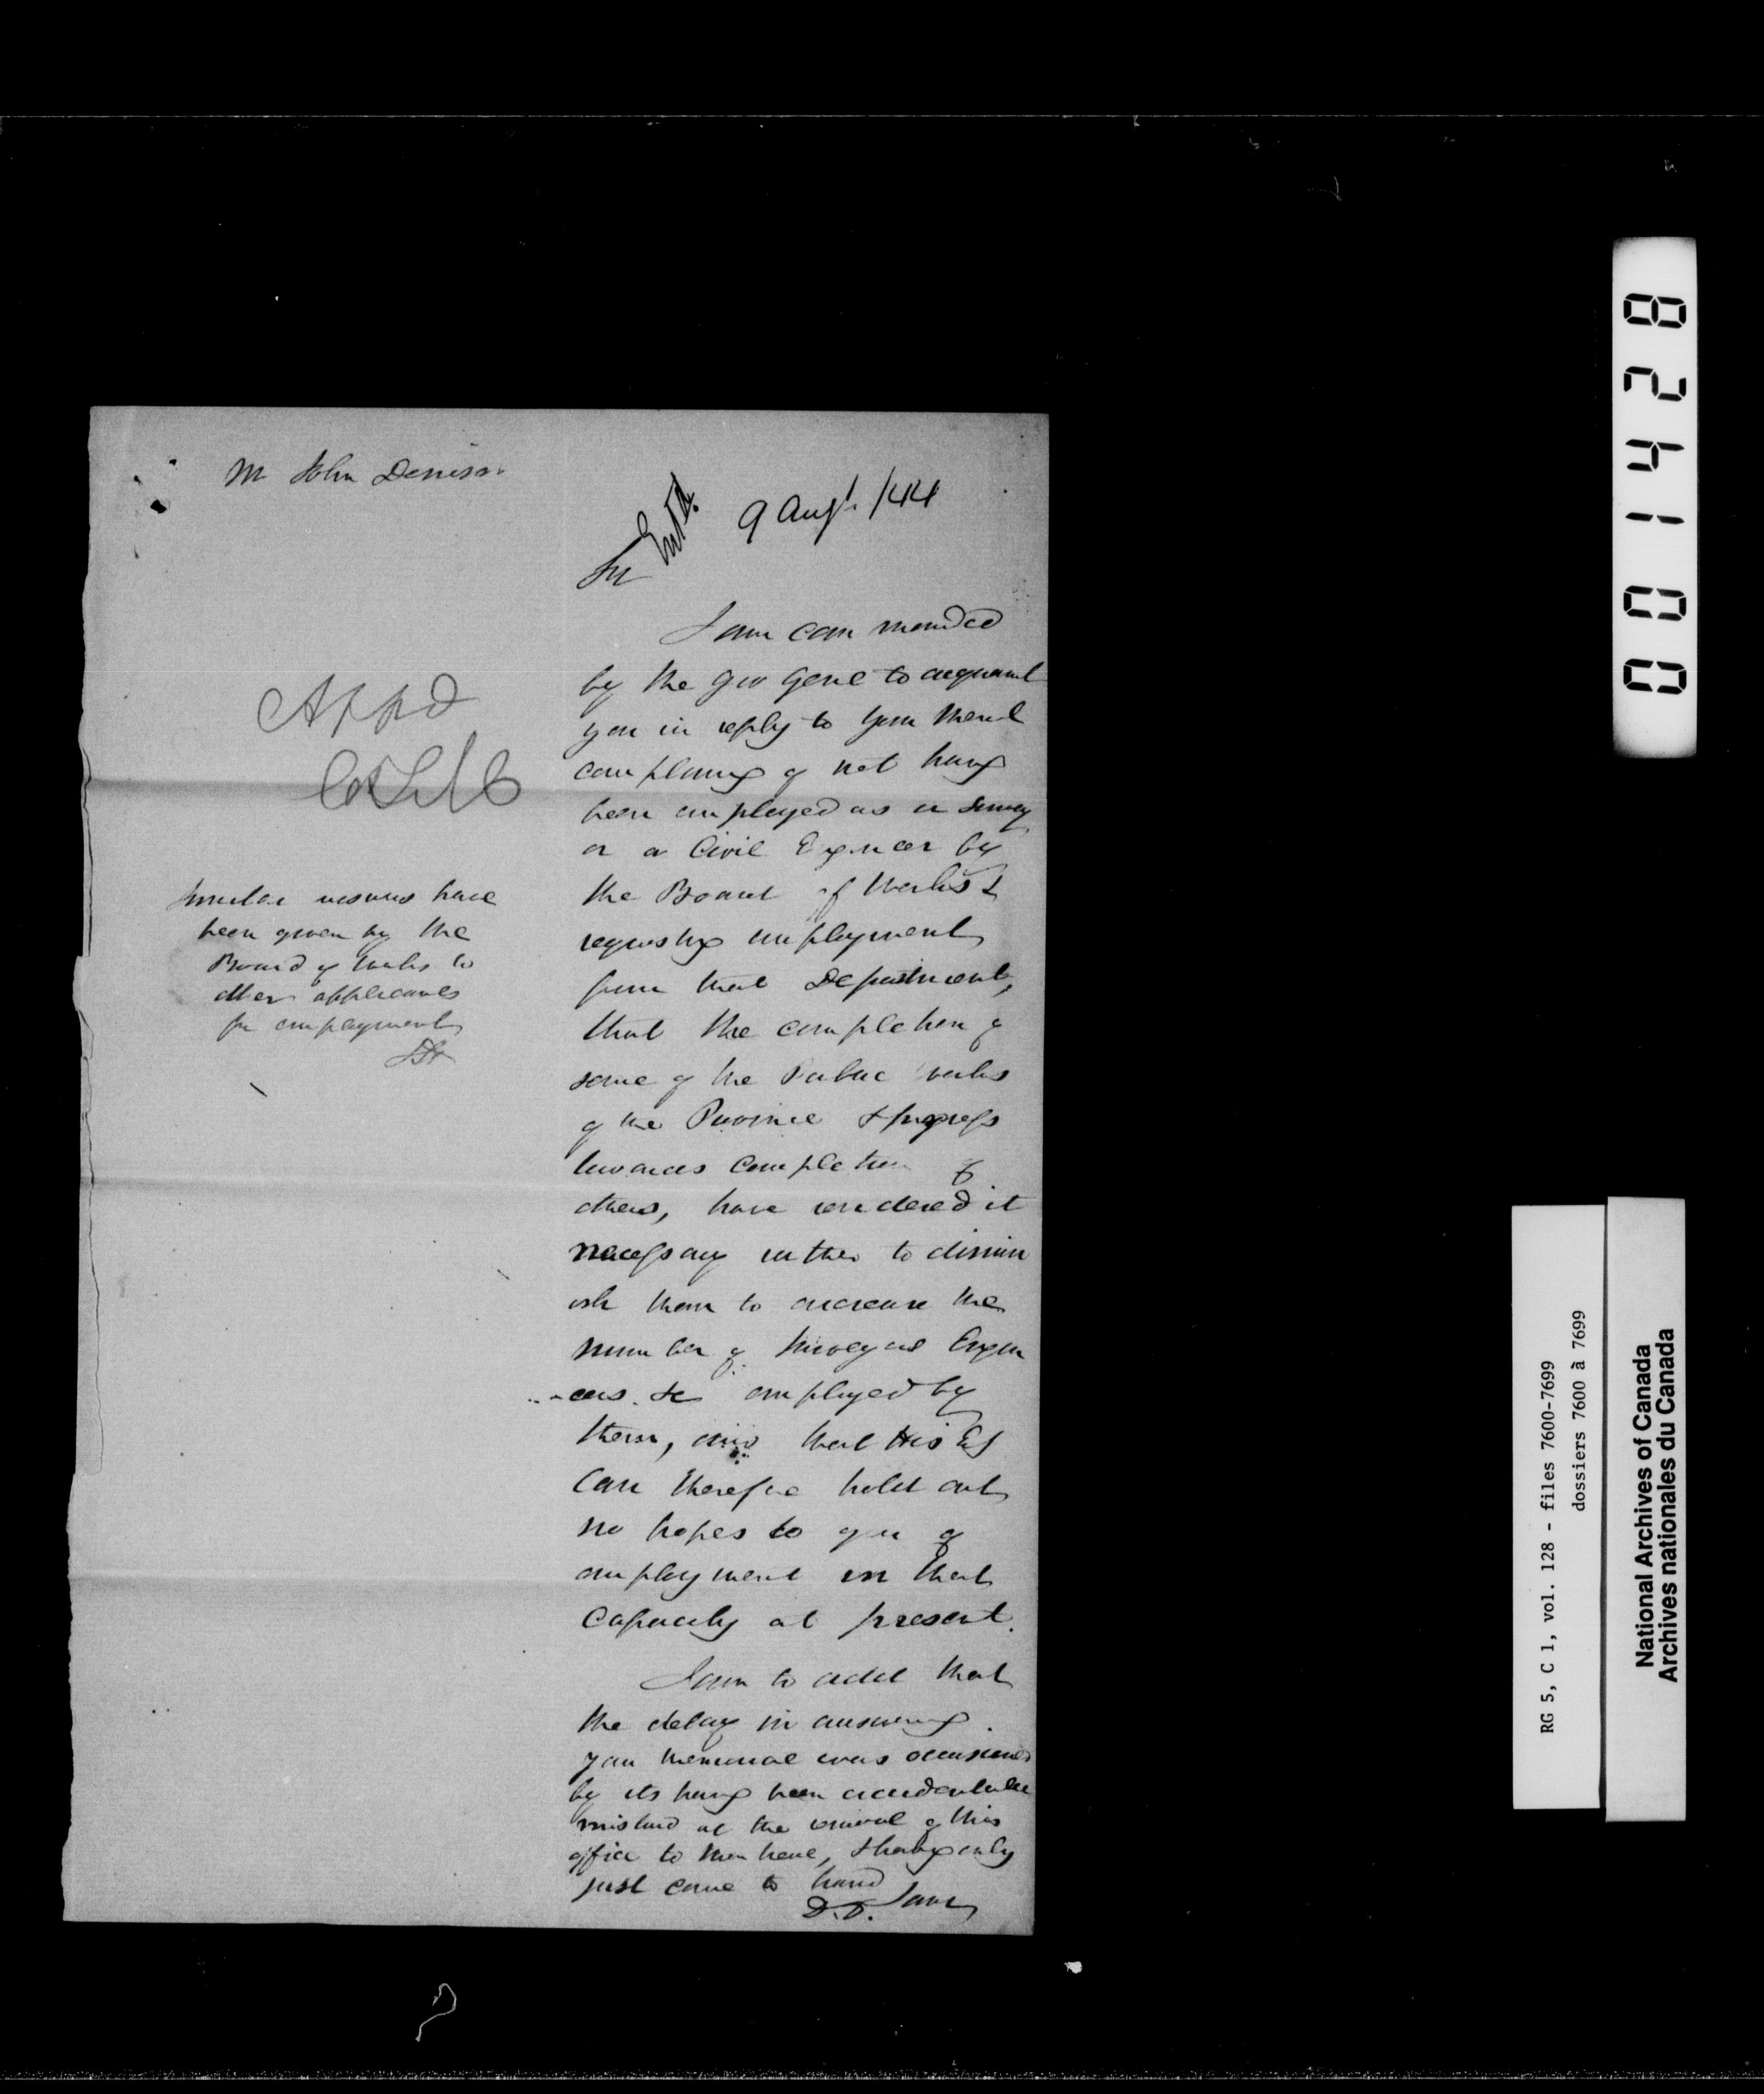 Mr John Denison
Entd.
9 Augt. /44
Sir
I am commanded
by the Gov Genl to acquaint
you in reply to your Meml
complaing of not havg
been employed as a Survey
or a Civil Engineer by
the Board of Works &
requestg employment
from that Department,
that the completion of
some of the Public Works
of the Province & progress
towards completion of
others, have rendered it
necessary rather to dimin
ish than to increase the
number of Surveyors Engin
-eers &c employed by
them, and that His Ex
can therefore hold out
no hopes to you of
employment in that
capacity at present.
I am to add that
the delay in answering
your memorial was occasioned
by its havg been accidentally
mislaid at the removal of this
office to Montreal, & havg only
just come to hand
I am
D.D.
Appd
Similar answers have
been given by the
Board of Works to
other applicants
for employment
8 2 4 1 0 0
RG 5, C 1, vol. 128 - files 7600-7699
dossiers 7600 à 7699
National Archives of Canada
Archives nationales du Canada